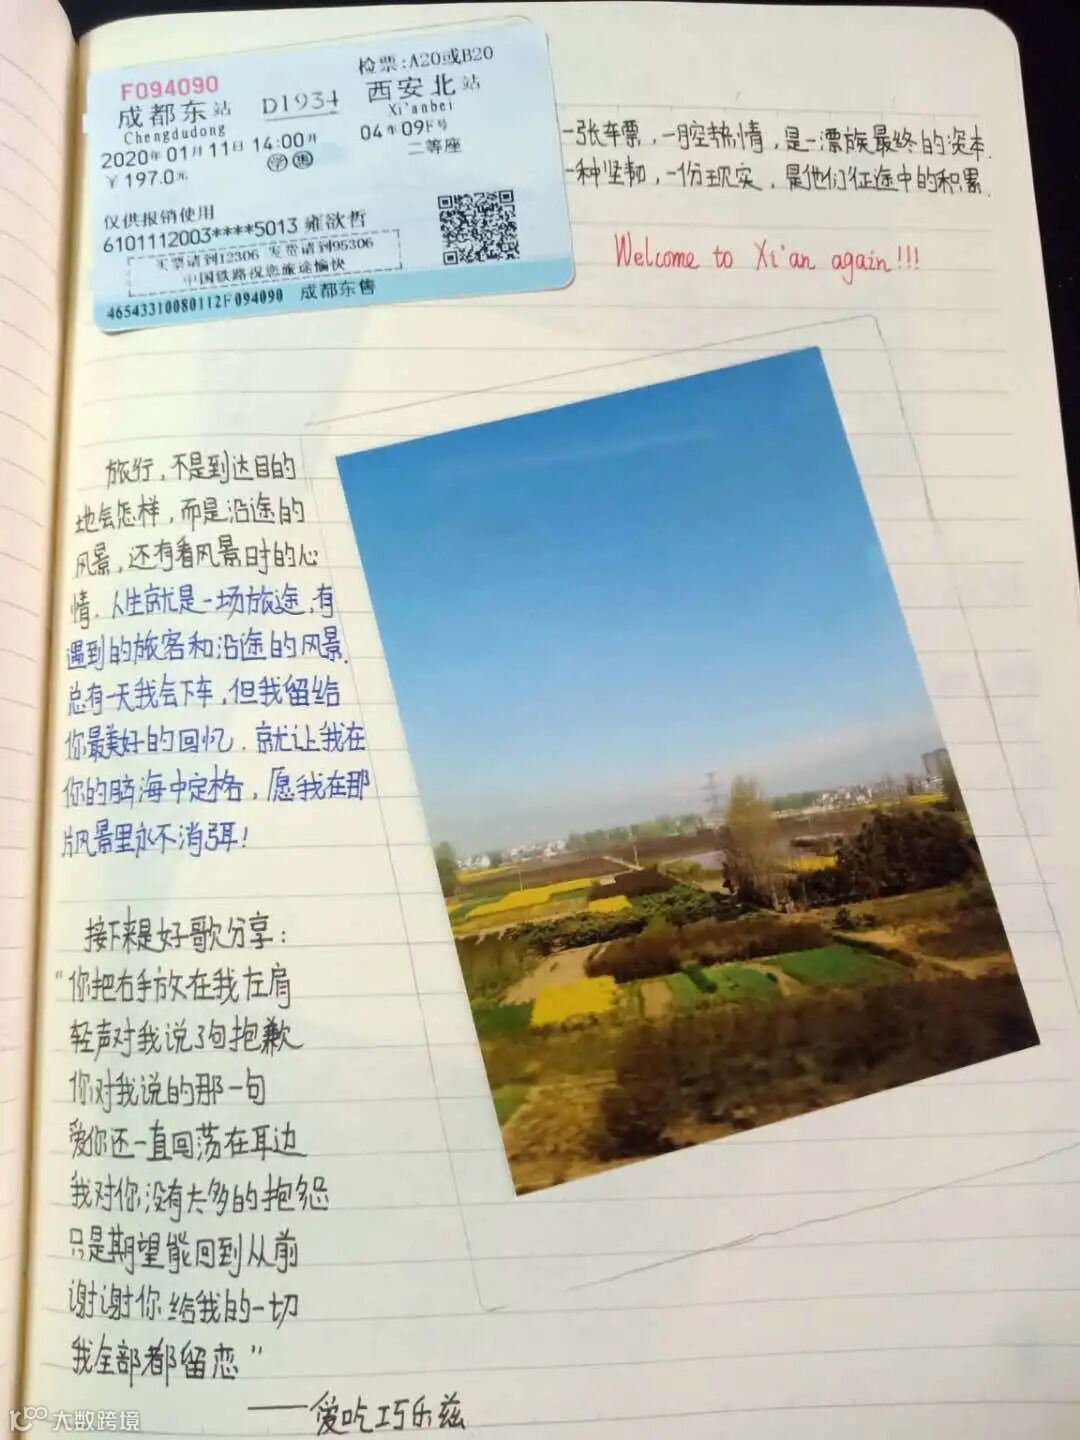 F094090
检票:A20或B20
成都东站 D1934 西安北站
Chengdudong Xi'anbei
2020年01月11日 14:00开 04车09F号
￥197.0元 学 惠 二等座
仅供报销使用
6101112003****5013 雍欲哲
买票请到12306 发货请到95306
中国铁路祝您旅途愉快
46543310080112F094090 成都东售
一张车票，一腔热情，是一漂族最终的资本.
一种坚韧，一份现实，是他们征途中的积累.
Welcome to Xi'an again!!!
旅行，不是到达目的
地会怎样，而是沿途的
风景，还有看风景时的心
情.人生就是一场旅途，有
遇到的旅客和沿途的风景.
总有一天我会下车，但我留给
你最美好的回忆.就让我在
你的脑海中定格，愿我在那
片风景里永不消弭！
接下来是好歌分享：
“你把右手放在我左肩
轻声对我说了句抱歉
你对我说的那一句
爱你还一直回荡在耳边
我对你没有太多的抱怨
只是期望能回到从前
谢谢你给我的一切
我全部都留恋”
——爱吃巧乐兹
大数跨境